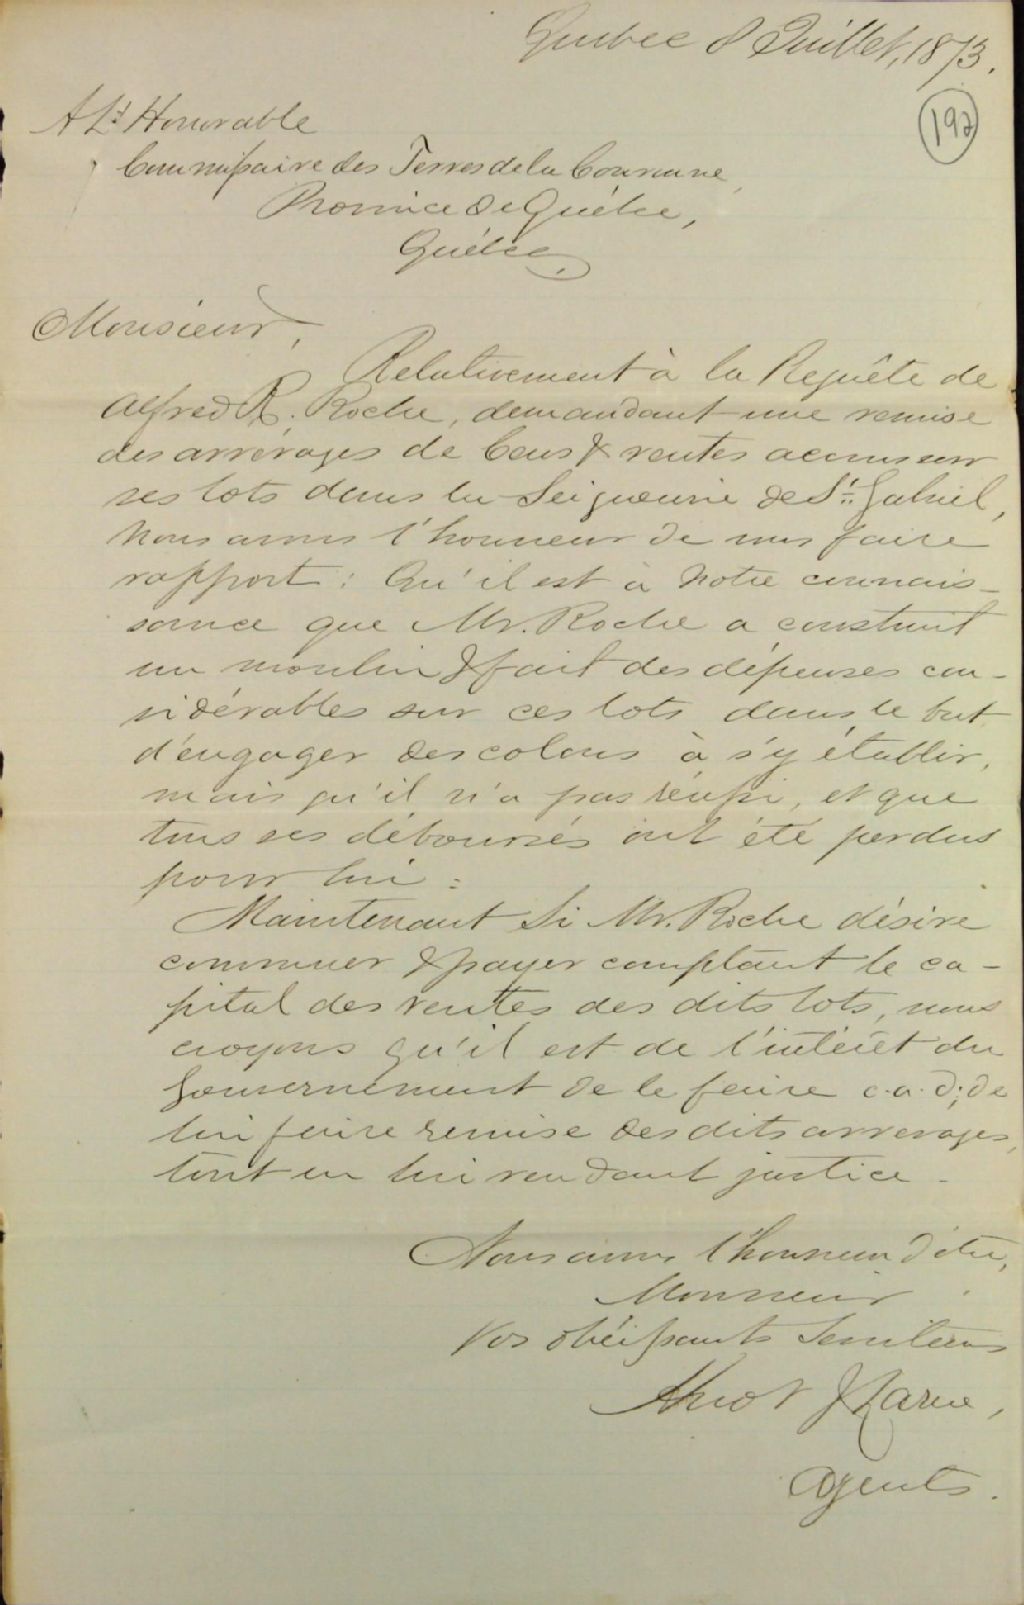 Quebec 8 Juillet, 1873.
192
A L'Honorable
Commissaire des Terres de la Couronne,
Province de Québec,
Québec,
Monsieur,
Relativement à la Requête de
Alfred R. Roche, demandant une remise
des arrérages de Cens & rentes accrus sur
ses lots dans la Seigneurie de St. Gabriel,
Nous avons l'honneur de vous faire
rapport : Qu'il est à notre connais-
sance que Mr. Roche a construit
un moulin & fait des dépenses con-
sidérables sur ces lots dans le but
d'engager des colons à s'y établir,
mais qu'il n'a pas réussi, et que
tous ses déboursés ont été perdus
pour lui :
Maintenant Si Mr. Roche désire
commuer & payer comptant le ca-
pital des rentes des dits lots, nous
croyons qu'il est de l'intérêt du
Gouvernement de le faire c.a.d; de
lui faire remise des dits arrerages,
tout en lui rendant justice -
Nous avons l'honneur d'être,
Monsieur
Vos obéissants Serviteurs
Huot & Larue,
Agents.